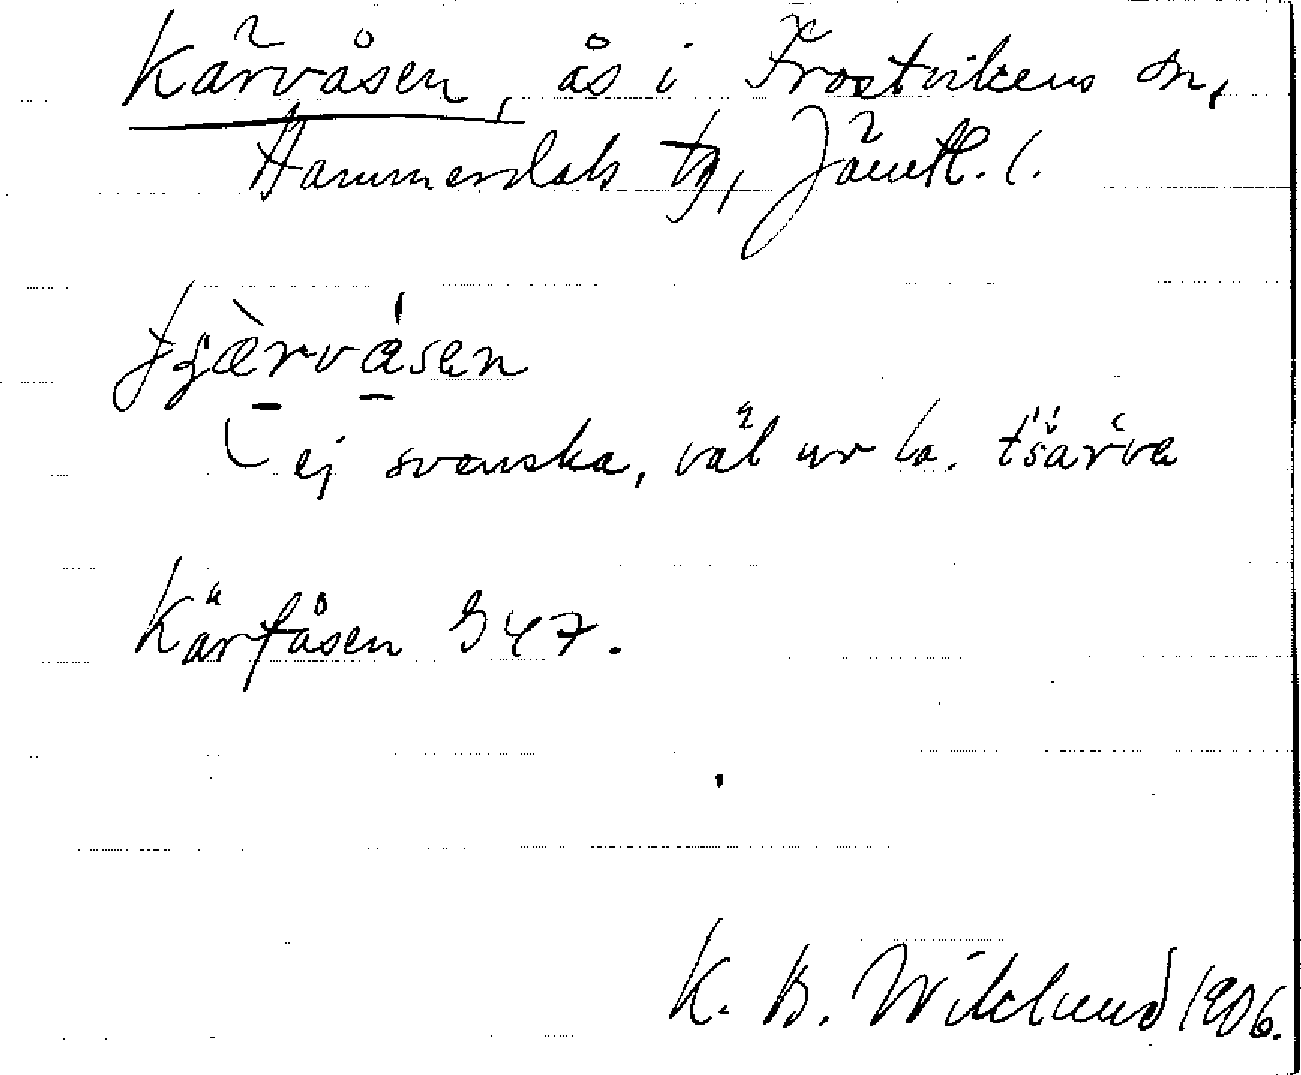 Kärvåsen, ås i Frostvikens sn,
Hammerdals tg, Jämtl. l.
ej svenska, väl ur la. tšärva
Kärfåsen G 47.
K. B. Wiklund 1906.